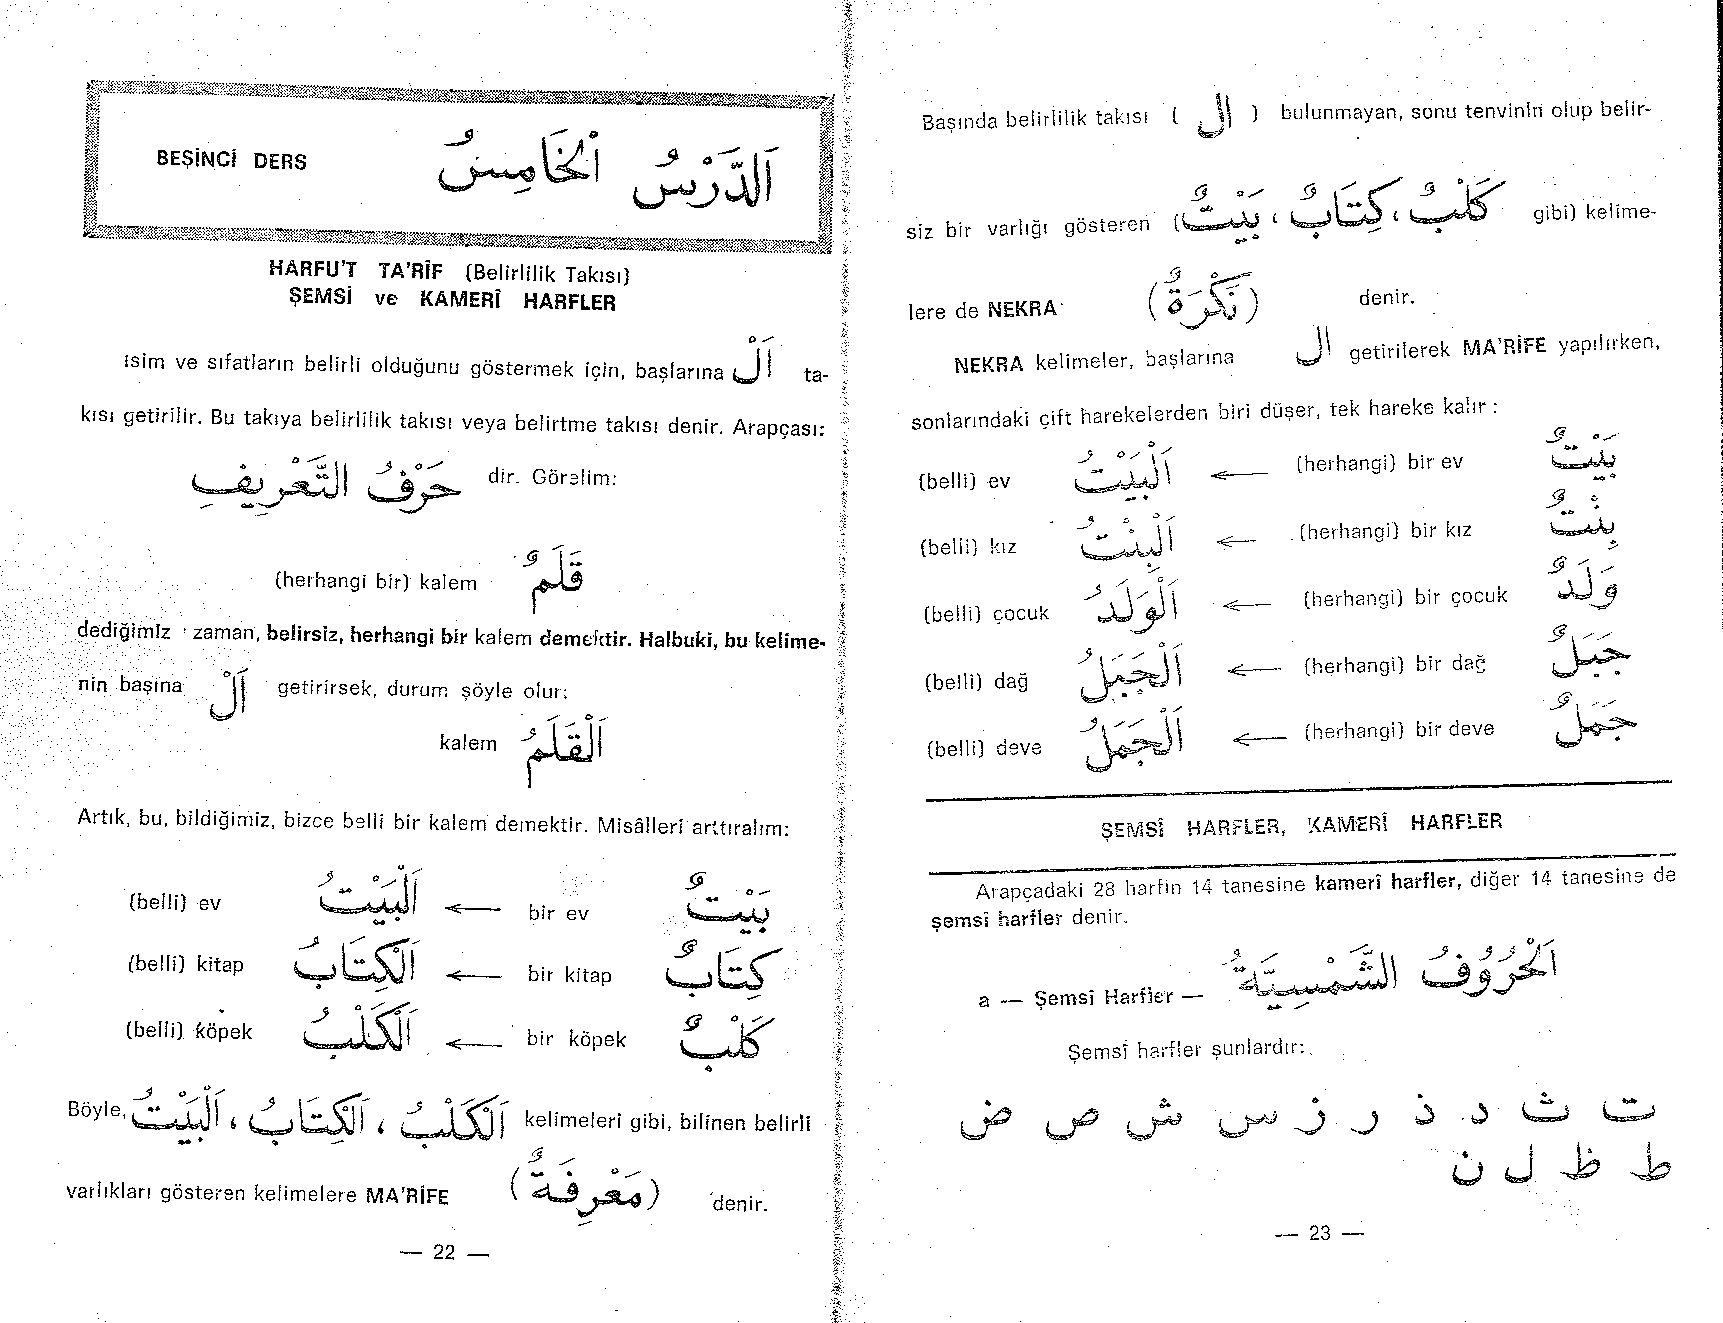 BEŞİNCİ DERS اَلدَّرْسُ اَلْخَامِسُ
HARFU'T TA'RÎF (Belirlilik Takısı)
ŞEMSİ ve KAMERÎ HARFLER
İsim ve sıfatların belirli olduğunu göstermek için, başlarına اَلْ ta-
kısı getirilir. Bu takıya belirlilik takısı veya belirtme takısı denir. Arapçası:
حَرْفُ التَّعْرِيفِ dir. Görelim:
(herhangi bir) kalem قَلَمٌ
dediğimiz zaman, belirsiz, herhangi bir kalem demektir. Halbuki, bu kelime-
nin başına اَلْ getirirsek, durum şöyle olur:
kalem اَلْقَلَمُ
Artık, bu, bildiğimiz, bizce belli bir kalem demektir. Misâlleri arttıralım:
(belli) ev اَلْبَيْتُ ← bir ev بَيْتٌ
(belli) kitap اَلْكِتَابُ ← bir kitap كِتَابٌ
(belli) köpek اَلْكَلْبُ ← bir köpek كَلْبٌ
Böyle, اَلْكَلْبُ ، اَلْكِتَابُ ، اَلْبَيْتُ kelimeleri gibi, bilinen belirli
varlıkları gösteren kelimelere MA'RİFE (مَعْرِفَةٌ) denir.
— 22 —
Başında belirlilik takısı ( ال ) bulunmayan, sonu tenvinin olup belir-
siz bir varlığı gösteren (كَلْبٌ ، كِتَابٌ ، بَيْتٌ gibi) kelime-
lere de NEKRA (نَكْرَةٌ) denir.
NEKRA kelimeler, başlarına ال getirilerek MA'RİFE yapılırken,
sonlarındaki çift harekelerden biri düşer, tek hareke kalır :
(belli) ev اَلْبَيْتُ ← (herhangi) bir ev بَيْتٌ
(belli) kız اَلْبِنْتُ ← (herhangi) bir kız بِنْتٌ
(belli) çocuk اَلْوَلَدُ ← (herhangi) bir çocuk وَلَدٌ
(belli) dağ اَلْجَبَلُ ← (herhangi) bir dağ جَبَلٌ
(belli) deve اَلْجَمَلُ ← (herhangi) bir deve جَمَلٌ
ŞEMSÎ HARFLER, KAMERÎ HARFLER
Arapçadaki 28 harfin 14 tanesine kamerî harfler, diğer 14 tanesine de
şemsî harfler denir.
a — Şemsî Harfler — اَلْحُرُوفُ الشَّمْسِيَّةُ
Şemsî harfler şunlardır:
ت ث د ذ ر ز س ش ص ض
ط ظ ل ن
— 23 —